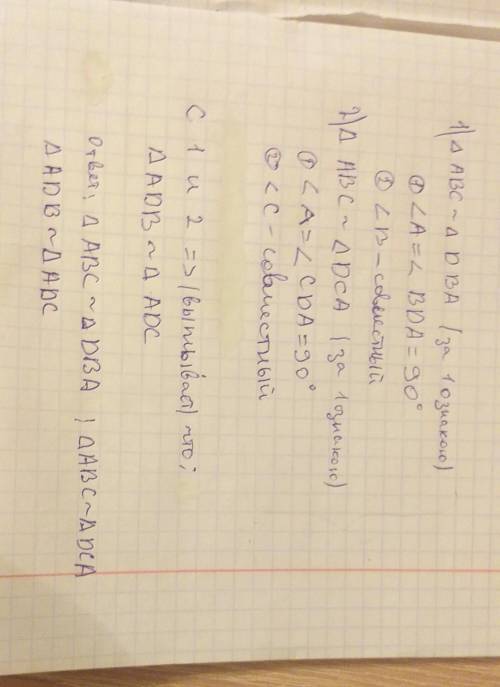 1) Δ ABC ~ Δ DBA (за 1 ознакою)
① ∠A = ∠ BDA = 90°
② ∠B – совместный
2) Δ ABC ~ ΔDCA (за 1 ознакою)
① ∠A = ∠ CDA = 90°
② ∠C – совместный
С 1 и 2 => (выплывает) что;
Δ ADB ~ Δ ADC
Ответ: Δ ABC ~ Δ DBA ; ΔABC ~ ΔDCA
Δ ADB ~ Δ ADC